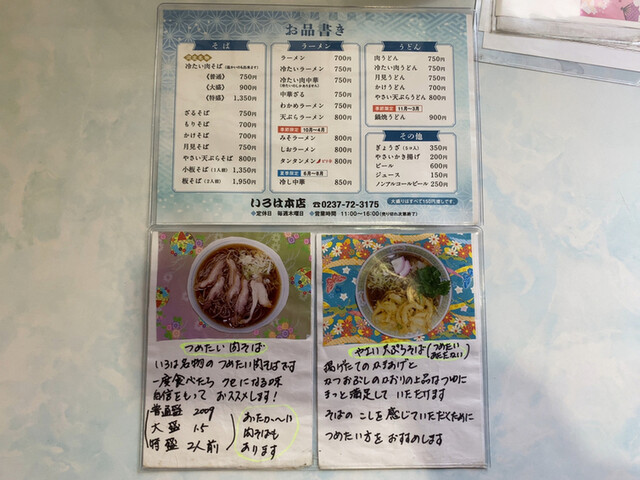 お品書き
そば
冷たい肉そば(温かいも出来ます)
(普通) 750円
(大盛) 900円
(特盛) 1,350円
ざるそば 750円
もりそば 700円
かけそば 700円
月見そば 750円
やさい天ぷらそば 800円
小板そば(1人前) 1,350円
板そば(2人前) 1,950円
ラーメン
ラーメン 700円
冷たいラーメン 750円
冷たい肉中華 750円
中華ざる 750円
わかめラーメン 800円
天ぷらラーメン 800円
季節限定 10月~4月
みそラーメン 800円
しおラーメン 800円
タンタンメン ピリ辛 800円
夏季限定 6月~8月
冷し中華 850円
うどん
肉うどん 750円
冷たい肉うどん 750円
月見うどん 750円
かけうどん 700円
やさい天ぷらうどん 800円
季節限定 11月~3月
鍋焼うどん 900円
その他
ぎょうざ(5ヶ入) 350円
やさいかき揚げ 200円
ビール 600円
ジュース 150円
ノンアルコールビール 250円
いろは本店 ☎0237-72-3175
※定休日 毎週木曜日 ※営業時間 11:00~16:00(売り切れ次第終了)
大盛りはすべて150円増しです。
つめたい肉そば
いろは名物の つめたい肉そばです
一度食べたら クセになる味
自信をもって おススメします!
普通盛 200g
大盛 1.5
特盛 2人前
あったか~い
肉そばも
あります
やさい天ぷらそば(つめたい
あたたかい)
揚げたての かきあげと
かつおぶしの かおりの上品なつゆに
きっと満足して いただけます
そばの こしを感じていただくために
つめたい方を おすすめします